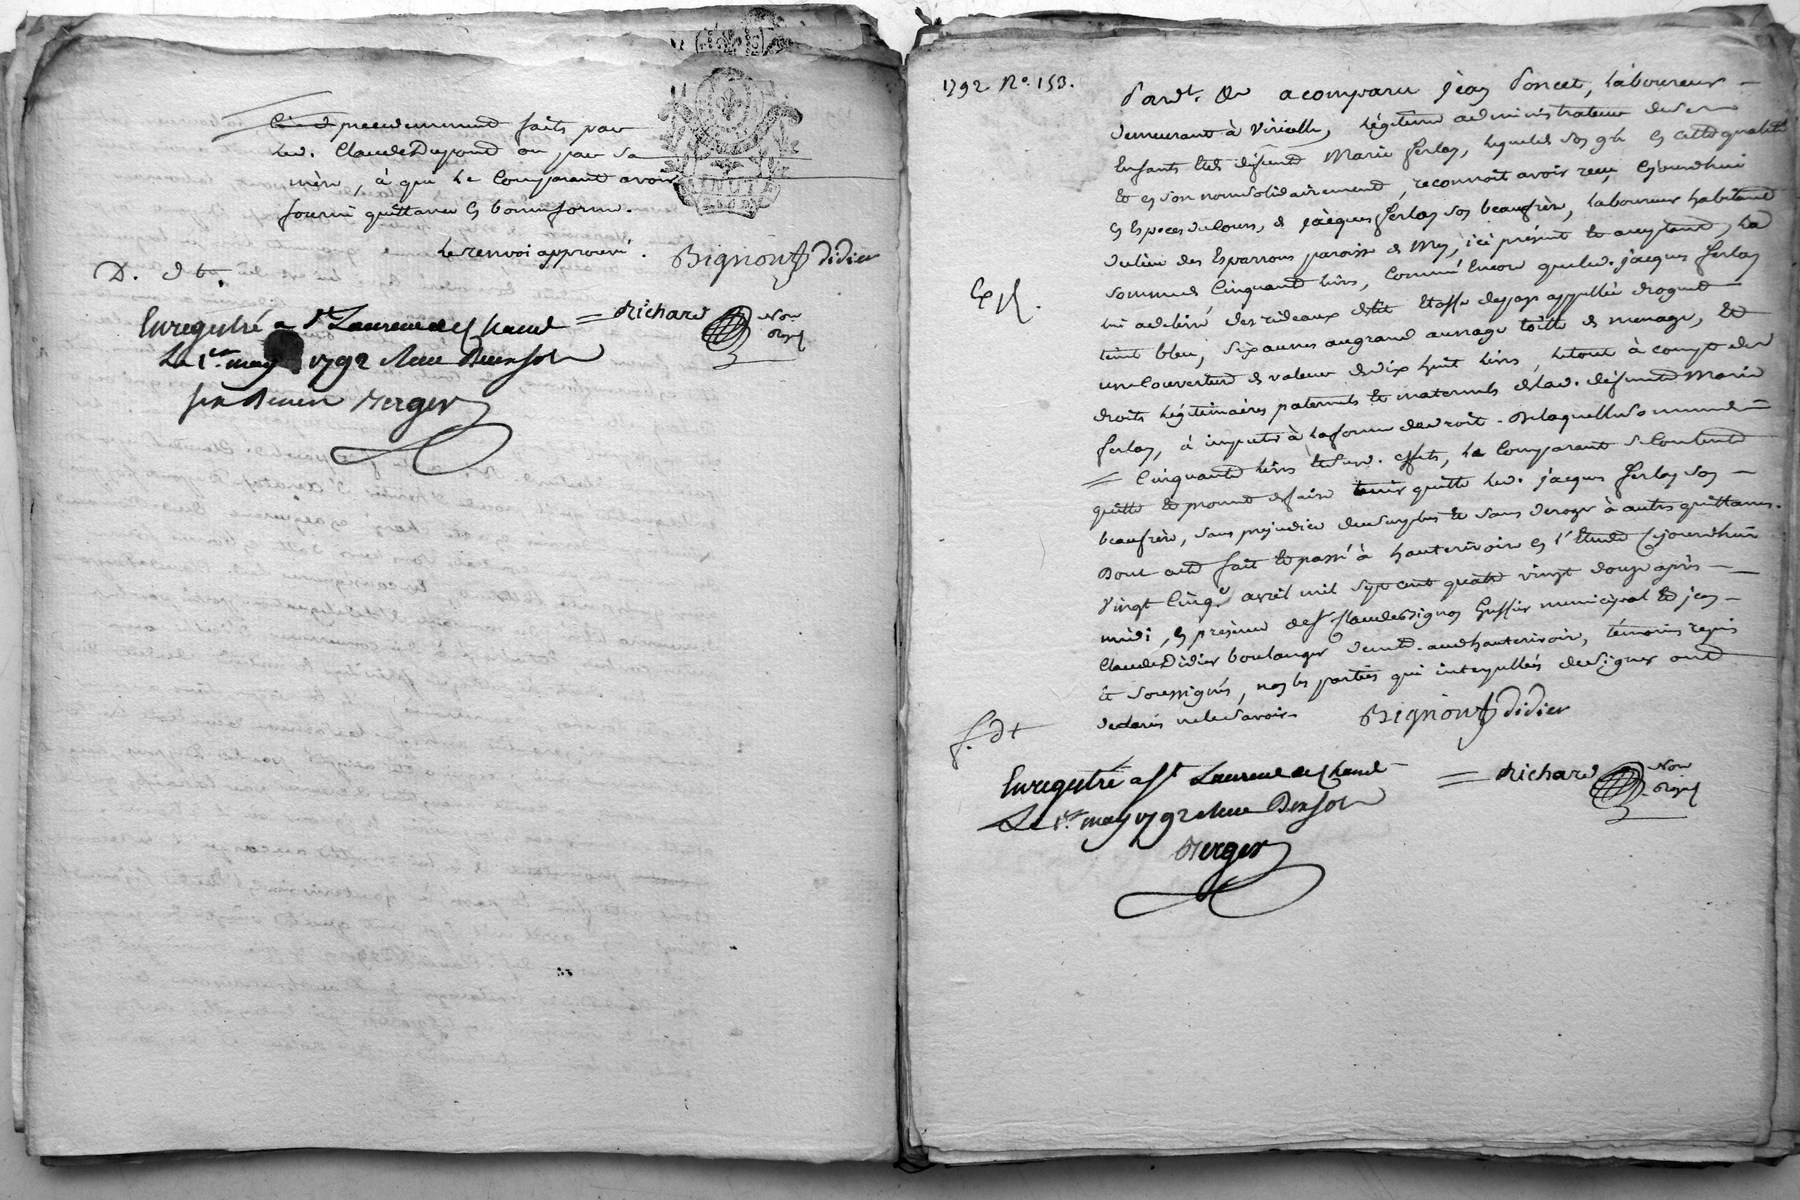 precedemment faits par
led. Claude Dupond ou par sa
mère, à qui le Comparant avoit
fourni quittance en bonne forme.
le renvoi approuvé. Bignon Didier
D. dt.
Enregistré a St Laurent de Chamt = Richard Nore
Le 1er may 1792 Reçu
Berger
MINUTE
1792 N° 153.
Pardt. Nre a comparu jean Poncet, laboureur
demeurant à Viricelle, légitime administrateur de ses
Enfants et de deffunte Marie ferlay, lequel de son gré en cette qualité
et en son nom solidairement, reconnoit avoir reçu, Cejourdhui
en Especes de Cours, de jàcques ferlay son beaufrère, laboureur habitant
du lieu des Esparrons paroisse de Mey, ici présent et acceptant, la
somme de Cinquante livres, Comme Encore que led. jàcques ferlay
lui a délivré des rideaux étoffe de pays appellée droguet
teint bleu, six aunes au grand aunage toille de menage, et
une Couverture de valeur de dix huit livres, le tout à compte des
droits légitimaires paternels et maternels de lad. deffunte Marie
ferlay, à imputer à la forme de droit. De laquelle somme de
Cinquante livres et susd. effets, le Comparant se Contente
quitte et promet de faire tenir quitte led. jàcques ferlay son
beaufrère, sans prejudice du surplus et sans deroger à autres quittances.
Dont acte fait et passé à hauterivoire en l'Etude Cejourdhui
vingt Cinq avril mil sept cent quatre vingt douze après
midi, en présence de sr. Claude Bignon Greffier municipal et jean
Claude Didier boulanger demt. aud. hauterivoire, témoins requis
et soussignés, non les parties qui interpellées de signer ont
declarés ne le savoir. Bignon Didier
Enregistré a St Laurent de Chamt = Richard Nore
Le 1er may 1792 Reçu Dix sols
Berger